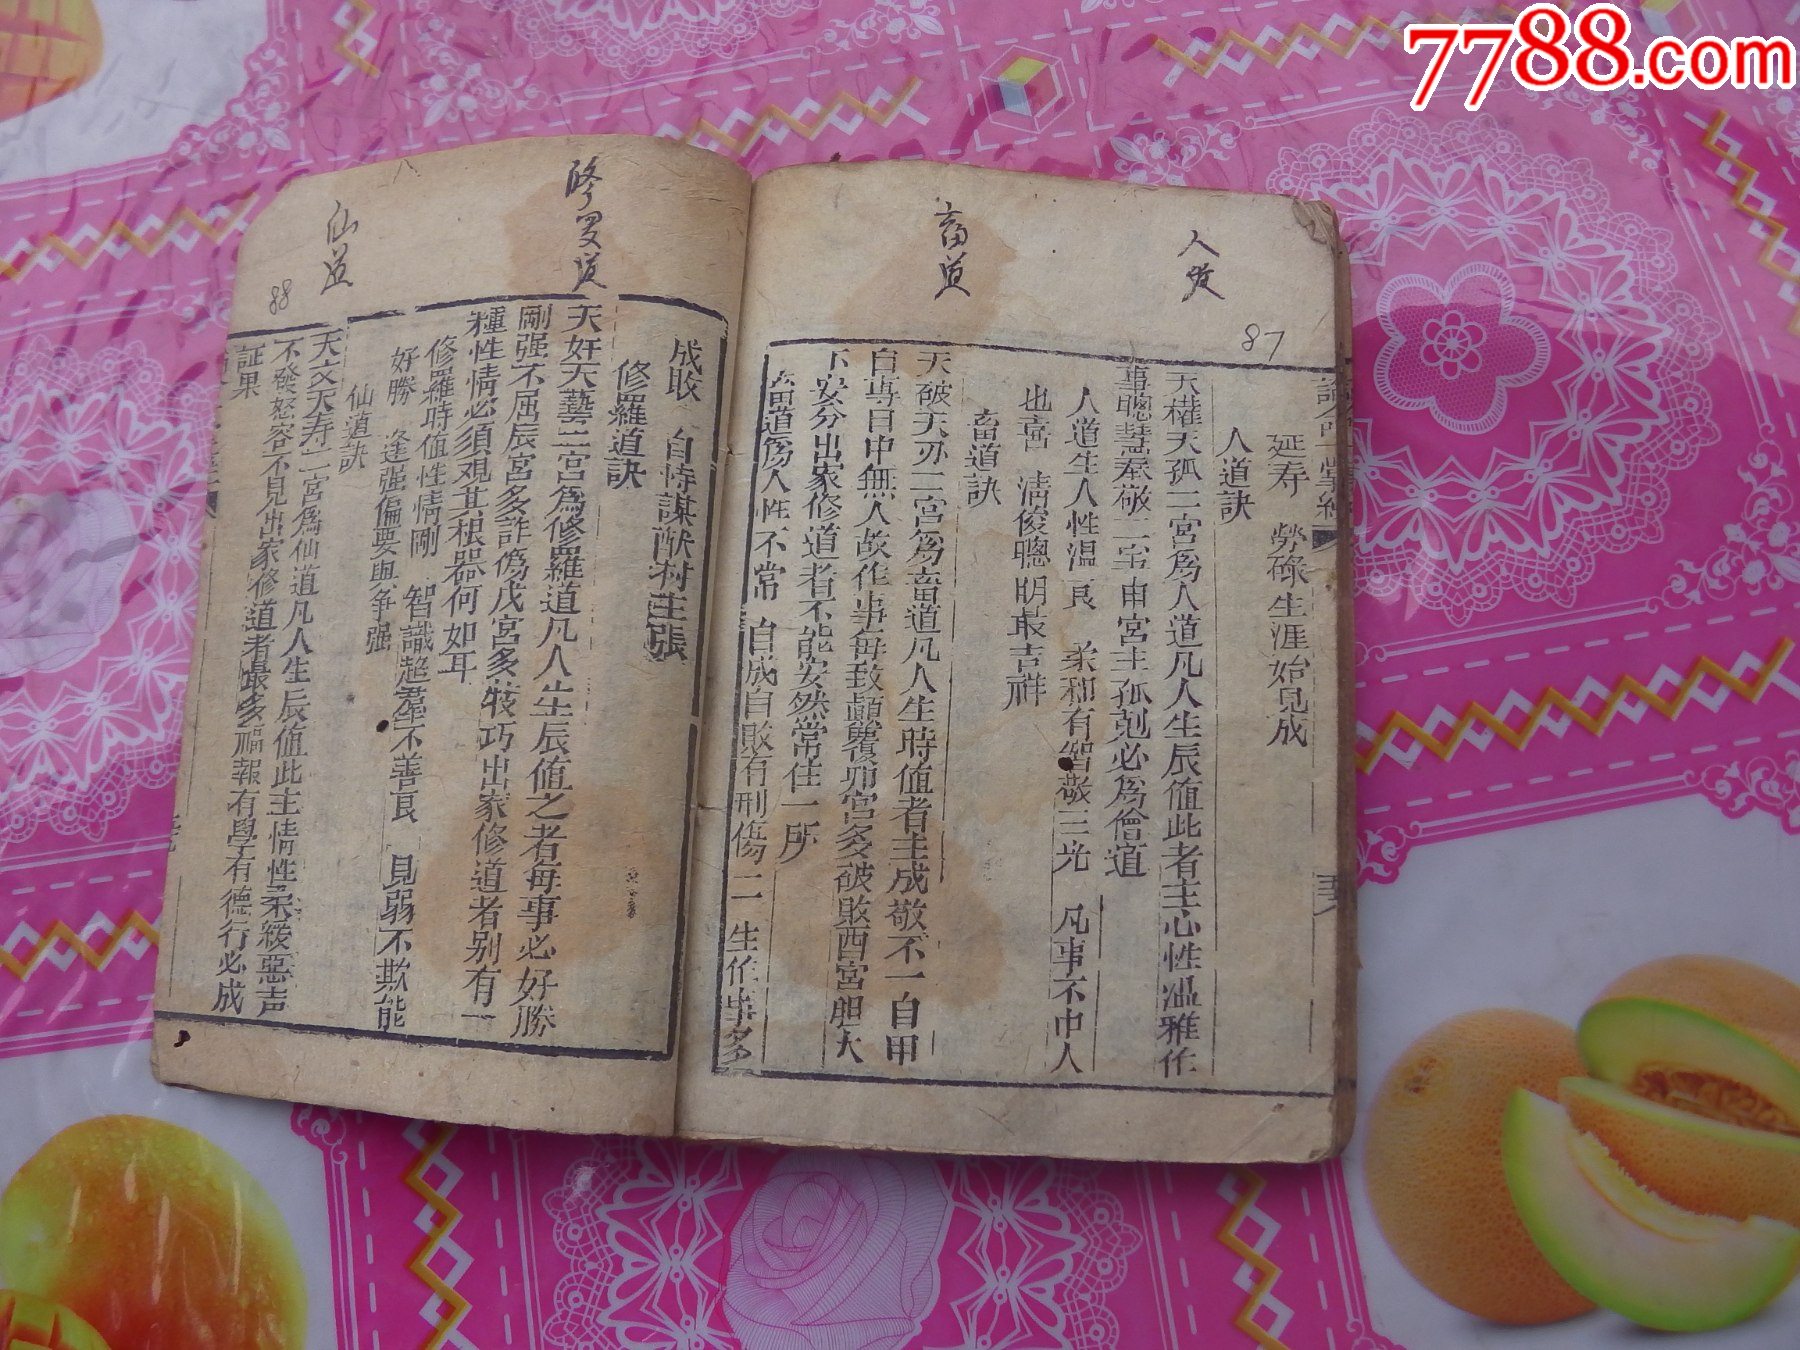 7788.com
人道
畜道
87
延寿 勞碌生涯始見成
人道訣
天權天孤二宮爲人道凡人生辰值此者主心性溫雅作
事聰慧奉敬二宝申宮主孤剋必爲僧道
人道生人性温良 柔和有智敬三光 凡事不中人
也喜 清俊聰明最吉祥
畜道訣
天破天刃二宮爲畜道凡人生時值者主成敬不一自甲
自專目中無人故作事每致顛覆卯宮多破敗酉宮胆大
不安分出家修道者不能安然常住一所
畜道爲人性不常 自成自敗有刑傷 二生作事多
修罗道
仙道
88
成敗 自恃謀猷衬主張
修羅道訣
天奸天藝二宮爲修羅道凡人生辰值之者每事必好勝
剛强不屈辰宮多詐僞戌宮多技巧出家修道者别有一
種性情必須观其根器何如耳
修羅時值性情剛 智識超羣不善良 見弱不欺能
好勝 逢强偏要與争强
仙道訣
天文天寿二宮爲仙道凡人生辰值此主情性柔緩惡声
不發怒容不見出家修道者最多福報有學有德行必成
証果